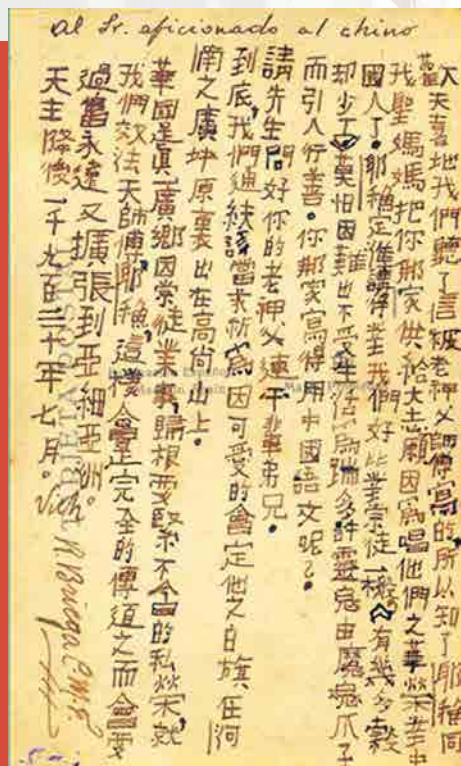 Al Sr. aficionado al chino
天喜地我們聽了信被老神父師傅寫的所以知了耶穌同
我聖媽媽把你那家供給大志願因為唱他們之華業中
國人了。耶穌定准講得業我們好比業宗徒一樣有幾多穀
却少了莫怕困難也不受生活為踹多許靈魂由魔鬼爪子
而引人行善。你那家寫得用中國語文呢?。
請先生問好你的老神父連下業弟兄。
到底,我們通缺該當求祈為因可愛的會定他之白旗在河
南之廣坪原裏出在高尚山上。
華國是真廣鄉因宗徒業事,歸根要緊不會的私就
我們效法天師傅耶穌,這樣會完全的傳道之而會要
過當永遠又擴張到亞細亞洲。
天主降後一千九百二十年七月。Vich
R Briega C.M.F.